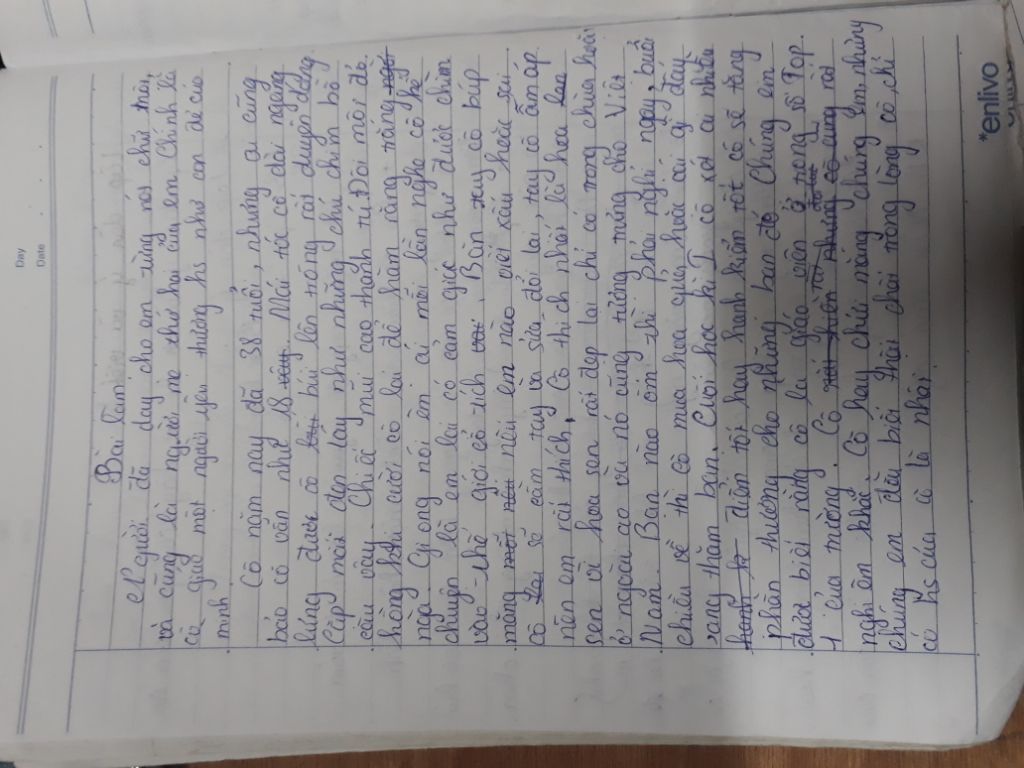 Day
Date
Bài làm
Người đã dạy cho em từng nét chữ
và cũng là người mẹ thứ hai của em. Chính là
cô giáo một người yêu thương hs như con đẻ của
mình
Cô năm nay đã 38 tuổi, nhưng ai cũng
bảo cô vẫn như 18. Mái tóc cô dài ngang
lưng được cô búi lên trông rất duyên dáng
Cặp môi đẹp tựa như những chú chim bồ
câu vậy. Chiếc mũi cao thanh tú. Đôi môi đỏ
hồng khi cười cô lại để hàm răng trắng
ngà. Giọng nói êm ái mỗi lần nghe cô kể
chuyện là em lại có cảm giác như được chìm
vào thế giới cổ tích. Bàn tay cô búp
măng nếu em nào viết xấu hoặc sai
cô sẽ cầm tay và sửa đổi lại, tay cô ấm áp
nên em rất thích. Cô thích nhất là hoa
sen vì hoa sen rất đẹp lại chỉ có trong chùa hoặc
ở ngoài ao và nó cũng tượng trưng cho Việt
Nam. Bạn nào ốm phải nghỉ ngay, buổi
chiều về thì cô mua hoa quả, hoặc cái gì đấy
sang thăm bạn. Cuối học kì I cô rất ai nhiều
điểm tốt hay hạnh kiểm tốt cô sẽ tặng
phần thưởng cho những bạn đó. Chúng em
được biết rằng cô là giáo viên ở trong số top
1 của mường. Cô rất
nghiêm khắc. Cô hay chửi mắng chúng em, nhưng
chúng em đều biết thật chất trong lòng cô, chỉ
có hs của cô là nhất
*enlivo